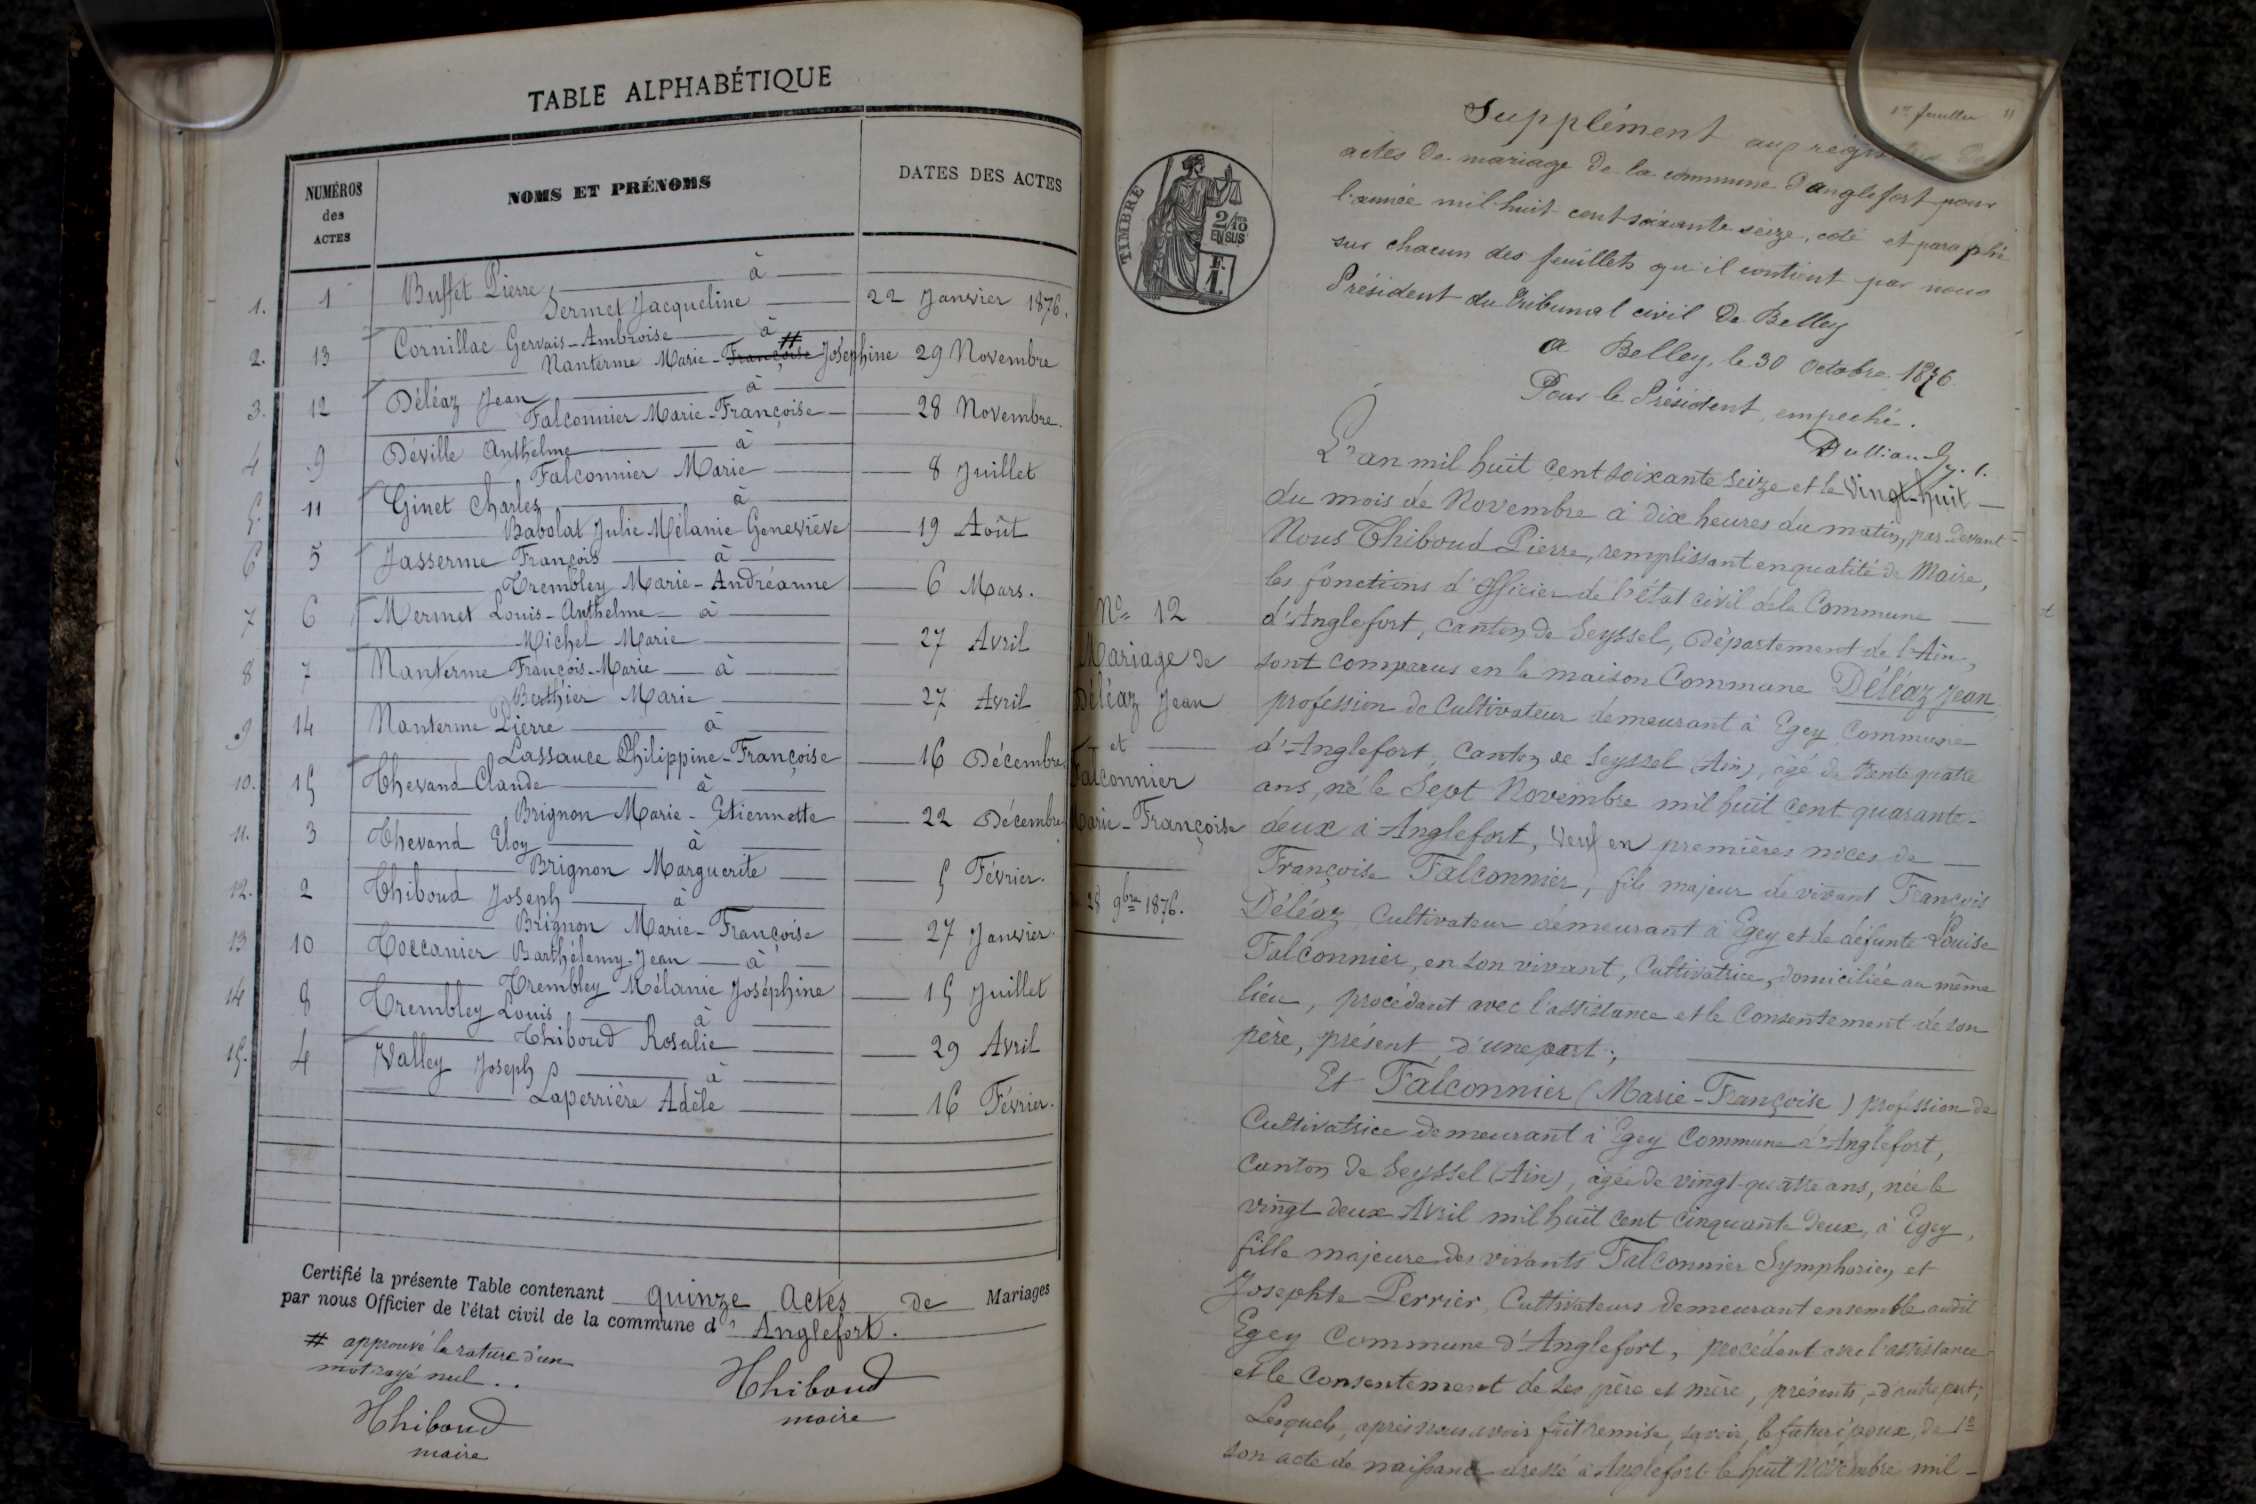 TABLE ALPHABÉTIQUE
NUMÉROS
des
ACTES
NOMS ET PRÉNOMS
DATES DES ACTES
1. 1 Buffet Pierre à
Sermet Jacqueline 22 Janvier 1876.
2. 13 Cornillac Gervais-Ambroise à
Nanterme Marie-Françoise # Josephine 29 Novembre
3. 12 Déléaz Jean à
Falconnier Marie-Françoise 28 Novembre.
4 9 Déville Anthelme à
Falconnier Marie 8 Juillet
5. 11 Ginet Charles à
Babolat Julie Mélanie Geneviève 19 Août
6 5 Jasserme François à
Trembley Marie-Andréanne 6 Mars.
7 6 Mermet Louis-Anthelme à
Michel Marie 27 Avril
8 7 Nanterme François-Marie à
Berthier Marie 27 Avril
9 14 Nanterme Pierre à
Lassauce Philippine-Françoise 16 Décembre
10. 15 Thevand Claude à
Brignon Marie-Etiennette 22 Décembre
11. 3 Thevand Eloy à
Brignon Marguerite 5 Février.
12. 2 Thiboud Joseph à
Brignon Marie-Françoise 27 Janvier.
13 10 Toccanier Barthélemy-Jean à
Trembley Mélanie Joséphine 15 Juillet
14 8 Trembley Louis à
Thiboud Rosalie 29 Avril
15. 4 Valley Joseph à
Laperrière Adèle 16 Février.
Certifié la présente Table contenant quinze actes de Mariages
par nous Officier de l'état civil de la commune d' Anglefort.
# approuvé la rature d'un
mot rayé nul..
Thiboud
maire
Thiboud
maire
1er feuillet 11
TIMBRE
2/10
EN SUS
F.
1.
Supplément aux registres de
actes de mariage de la commune d'anglefort pour
l'année mil-huit-cent soixante seize, coté et paraphé
sur chacun des feuillets qu'il contient par nous
Président du Tribunal civil de Belley
a Belley, le 30 octobre 1876
Pour le Président empeché.
N° 12
Mariage de
Déléaz Jean
et
Falconnier
Marie-Françoise
28 9bre 1876.
L'an mil huit cent soixante seize et le vingt-huit
du mois de Novembre à dix heures du matin, par devant
Nous Thiboud Pierre, remplissant en qualité de Maire,
les fonctions d'Officier de l'état civil de la Commune
d'Anglefort, canton de Seyssel, Département de l'Ain,
sont comparus en la maison Commune Déléaz Jean
profession de Cultivateur demeurant à Egey Commune
d'Anglefort, canton de Seyssel (Ain), âgé de trente quatre
ans, né le Sept Novembre mil huit cent quarante-
deux à Anglefort, veuf en premières noces de
Françoise Falconnier, fils majeur de vivant François
Déléaz Cultivateur demeurant à Egey et de défunte Louise
Falconnier, en son vivant, Cultivatrice, domiciliée au même
lieu, procédant avec l'assistance et le Consentement de son
père, présent, d'une part;
Et Falconnier (Marie-Françoise) profession de
Cultivatrice demeurant à Egey Commune d'Anglefort,
canton de Seyssel (Ain), âgée de vingt-quatre ans, née le
vingt deux Avril mil huit cent cinquante deux, à Egey,
fille majeure des vivants Falconnier Symphorien et
Josephte Perrier, Cultivateurs demeurant ensemble audit
Egey Commune d'Anglefort, procédant avec l'assistance
et le Consentement de ses père et mère, présents, d'autre part;
Lesquels, après nous avoir fait remise, savoir, le futur époux, de 1°
son acte de naissance dressé à Anglefort le huit Novembre mil-